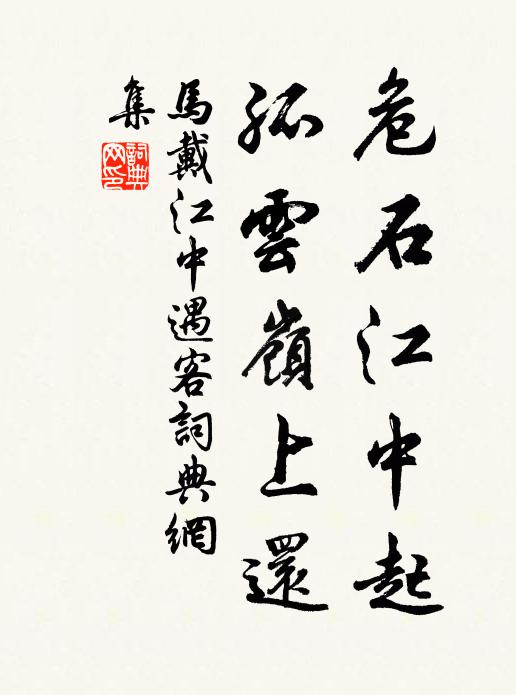 危石江中起
孤雲嶺上還
馬戴江中遇客詞典網
集
詞典
网印